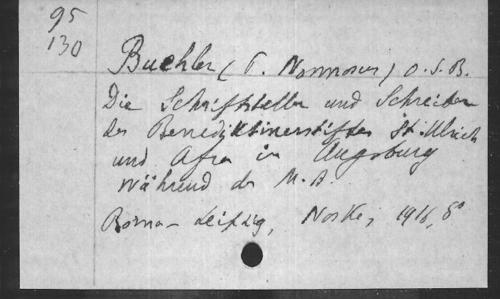 95
130
Buehler (P. Nonnosus) O.S.B.
Die Schriftsteller und Schreiber
des Benediktinerstiftes St. Ulrich
und Afra in Augsburg
während des M. A.
Borna-Leipzig, Noske, 1916, 8°